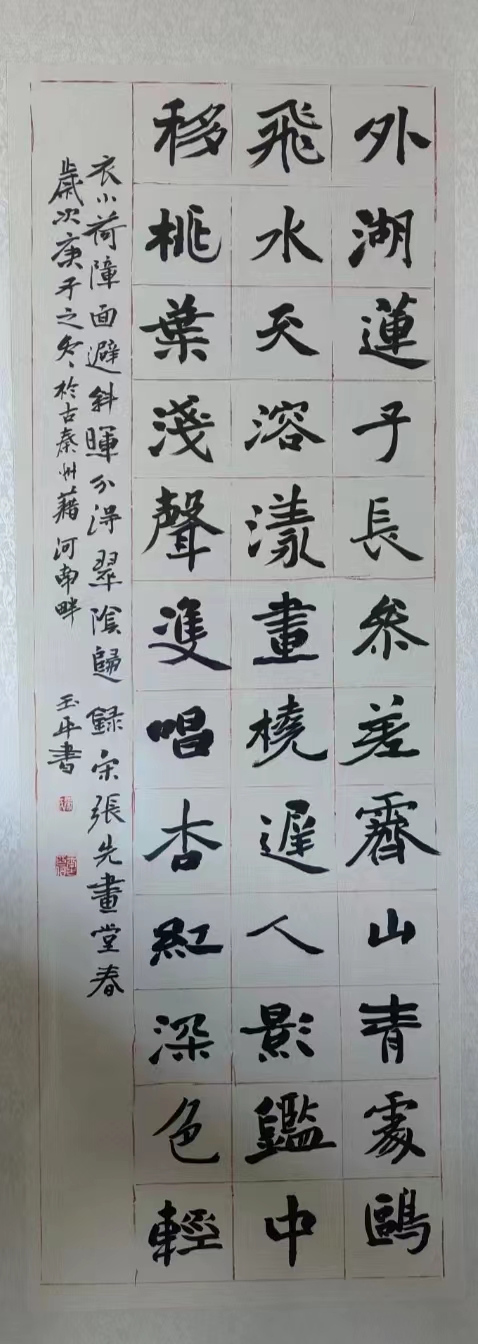 外湖蓮子長參差霽山青處鷗
飛水天溶漾畫橈遲人影鑑中
移桃葉淺聲雙唱杏紅深色輕
衣小荷障面避斜暉分得翠陰歸 録宋張先畫堂春
歲次庚子之冬於古秦州藉河南畔 玉牛書